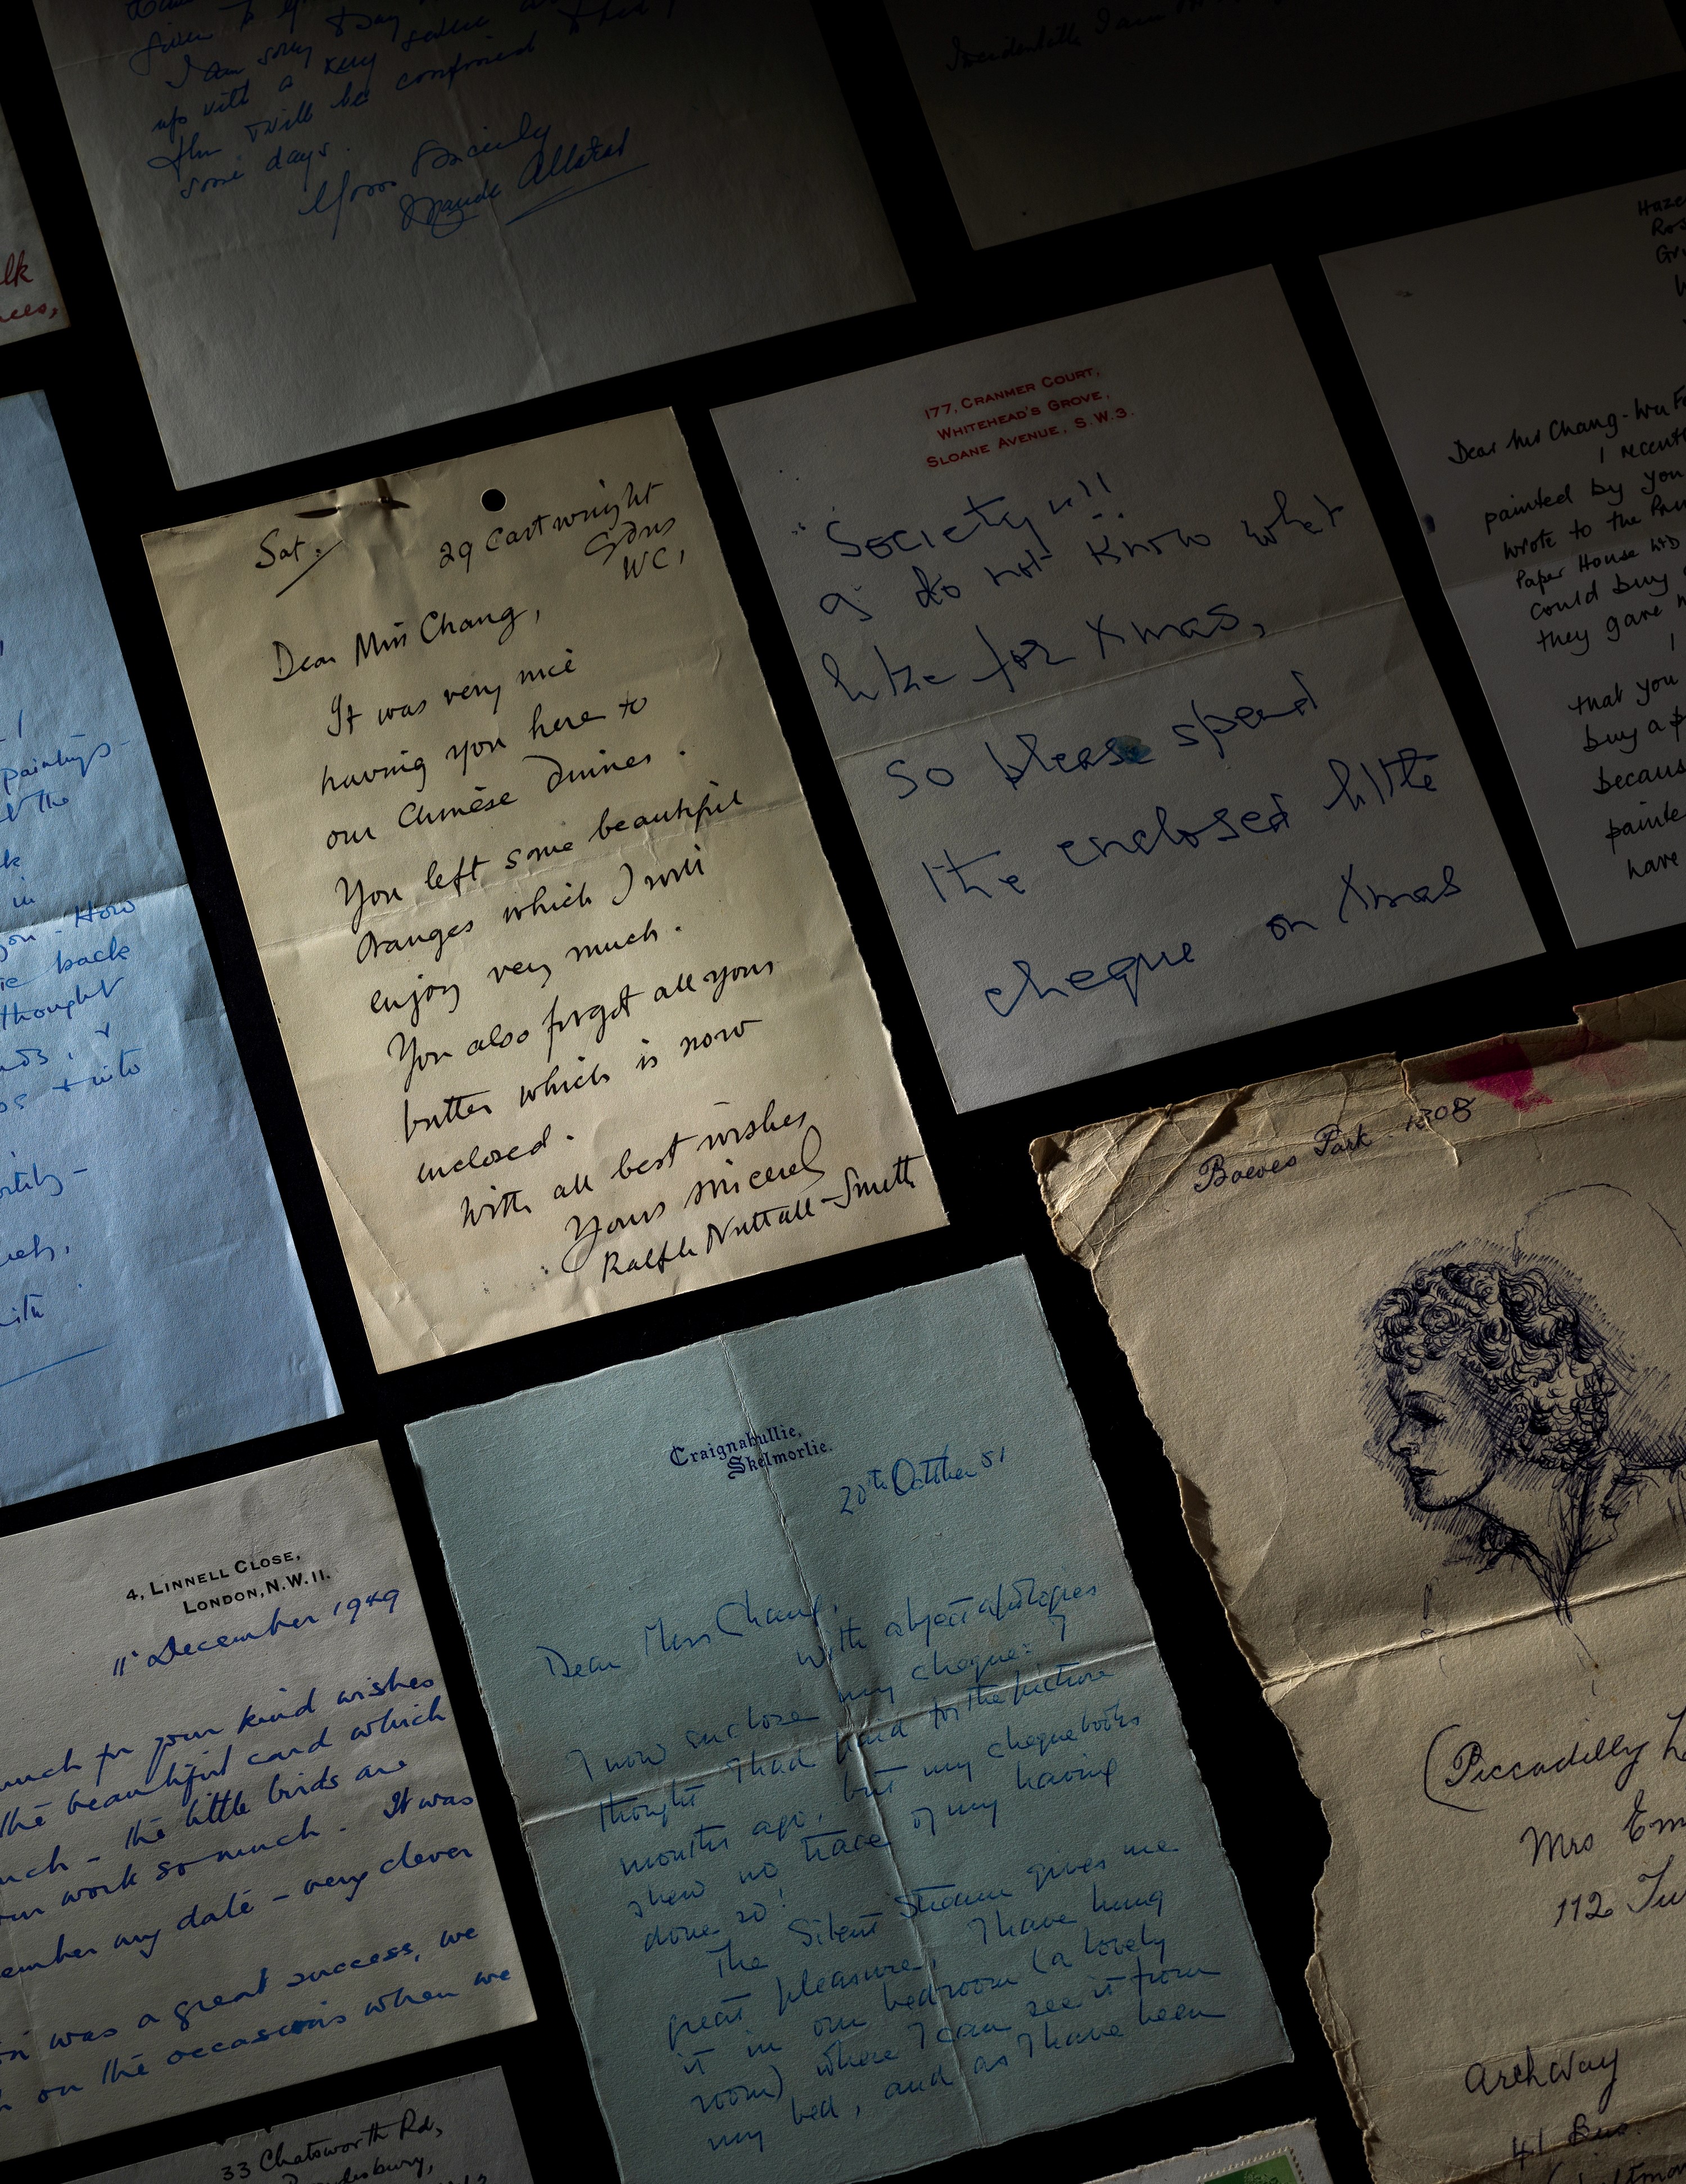 given to
I am sorry to say
up with a very severe
flu & will be confined to bed
some days.
Yours Sincerely
Maude
Incidentally I am
lk
177, CRANMER COURT,
WHITEHEAD'S GROVE,
SLOANE AVENUE, S.W.3.
Society n!!
I do not know what
like for Xmas,
so please spend
the enclosed little
cheque on Xmas
Dear Miss Chang-Wu F
I recent
painted by you
wrote to the
Paper House Ltd
could buy
they gave
I
that you
buy a p
because
painte
have
Sat.
29 Cartwright
Gdns
WC1
Dear Miss Chang,
It was very nice
having you here to
our Chinese Dinner.
You left some beautiful
oranges which I will
enjoy very much.
You also forgot all your
butter which is now
enclosed.
With all best wishes
Yours sincerely
Ralph Nuttall-Smith
paintings-
the
k
in
you. How
back
thought
+ into
ith
Craignahullie,
Skelmorlie.
20th October 51
Dear Miss Chang,
With abject apologies
I now enclose my cheque: I
thought I had paid for the picture
months ago, but my cheque books
shew no trace of my having
done so!
The Silent Stream gives me
great pleasure, I have hung
it in our bedroom (a lovely
room) where I can see it from
my bed, and as I have been
Park 1308
(Piccadilly
Mrs Em
112
Archway
41
4, LINNELL CLOSE,
LONDON, N.W.11.
11 December 1949
much for your kind wishes
the beautiful card which
much - the little birds are
work so much. It was
ember any date - very clever
was a great success, we
on the occasions when we
33 Chatsworth Rd,